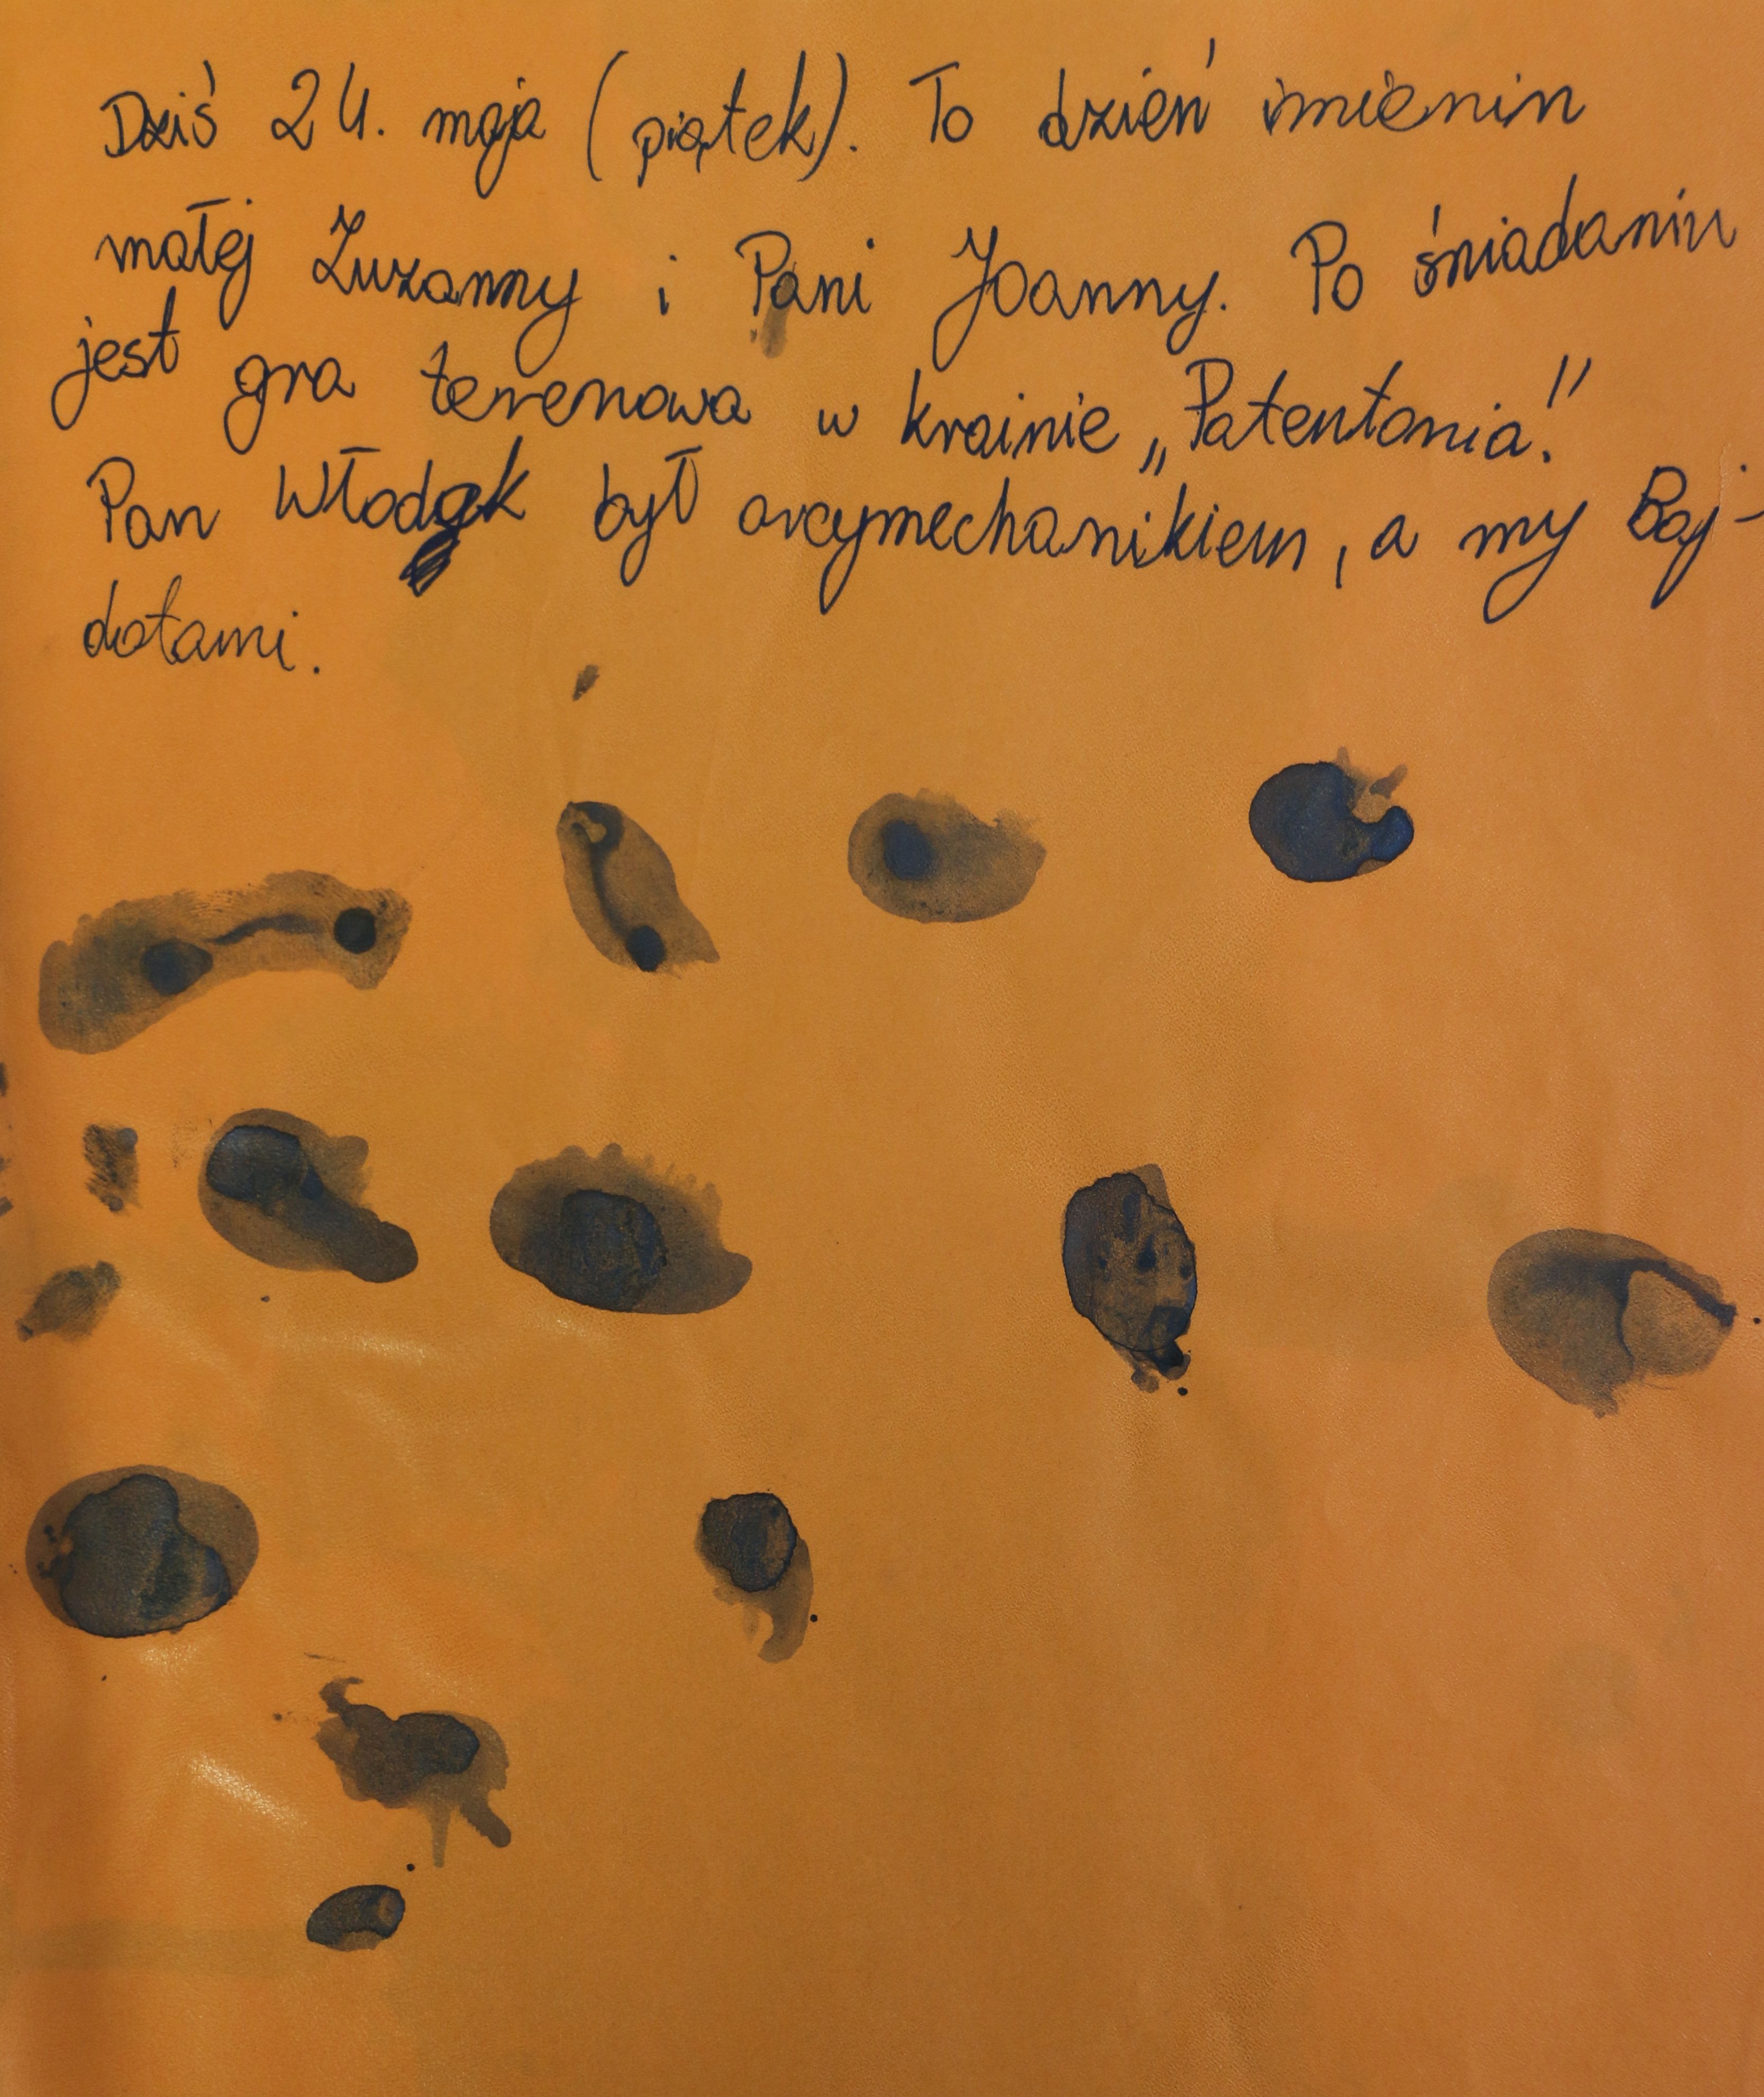 Dziś 24. maja (piątek). To dzień imienin
małej Zuzanny i Pani Joanny. Po śniadaniu
jest gra terenowa w krainie „Patentonia!"
Pan Włodek był arcymechanikiem, a my Baj-
dotami.